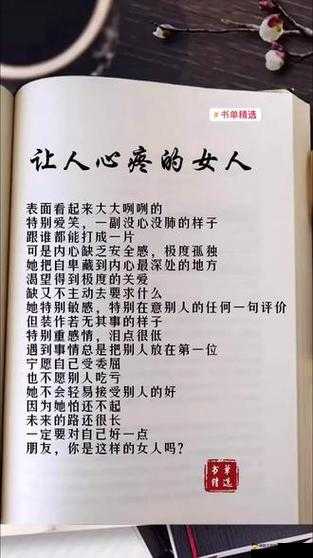 #书单精选
让人心疼的女人
表面看起来大大咧咧的
特别爱笑，一副没心没肺的样子
跟谁都能打成一片
可是内心缺乏安全感，极度孤独
她把自卑藏到内心最深处的地方
渴望得到极度的关爱
缺又不主动去要求什么
她特别敏感，特别在意别人的任何一句评价
但装作若无其事的样子
特别重感情，泪点很低
遇到事情总是把别人放在第一位
宁愿自己受委屈
也不愿别人吃亏
她不会轻易接受别人的好
因为她怕还不起
未来的路还很长
一定要对自己好一点
朋友，你是这样的女人吗？
书单
精选